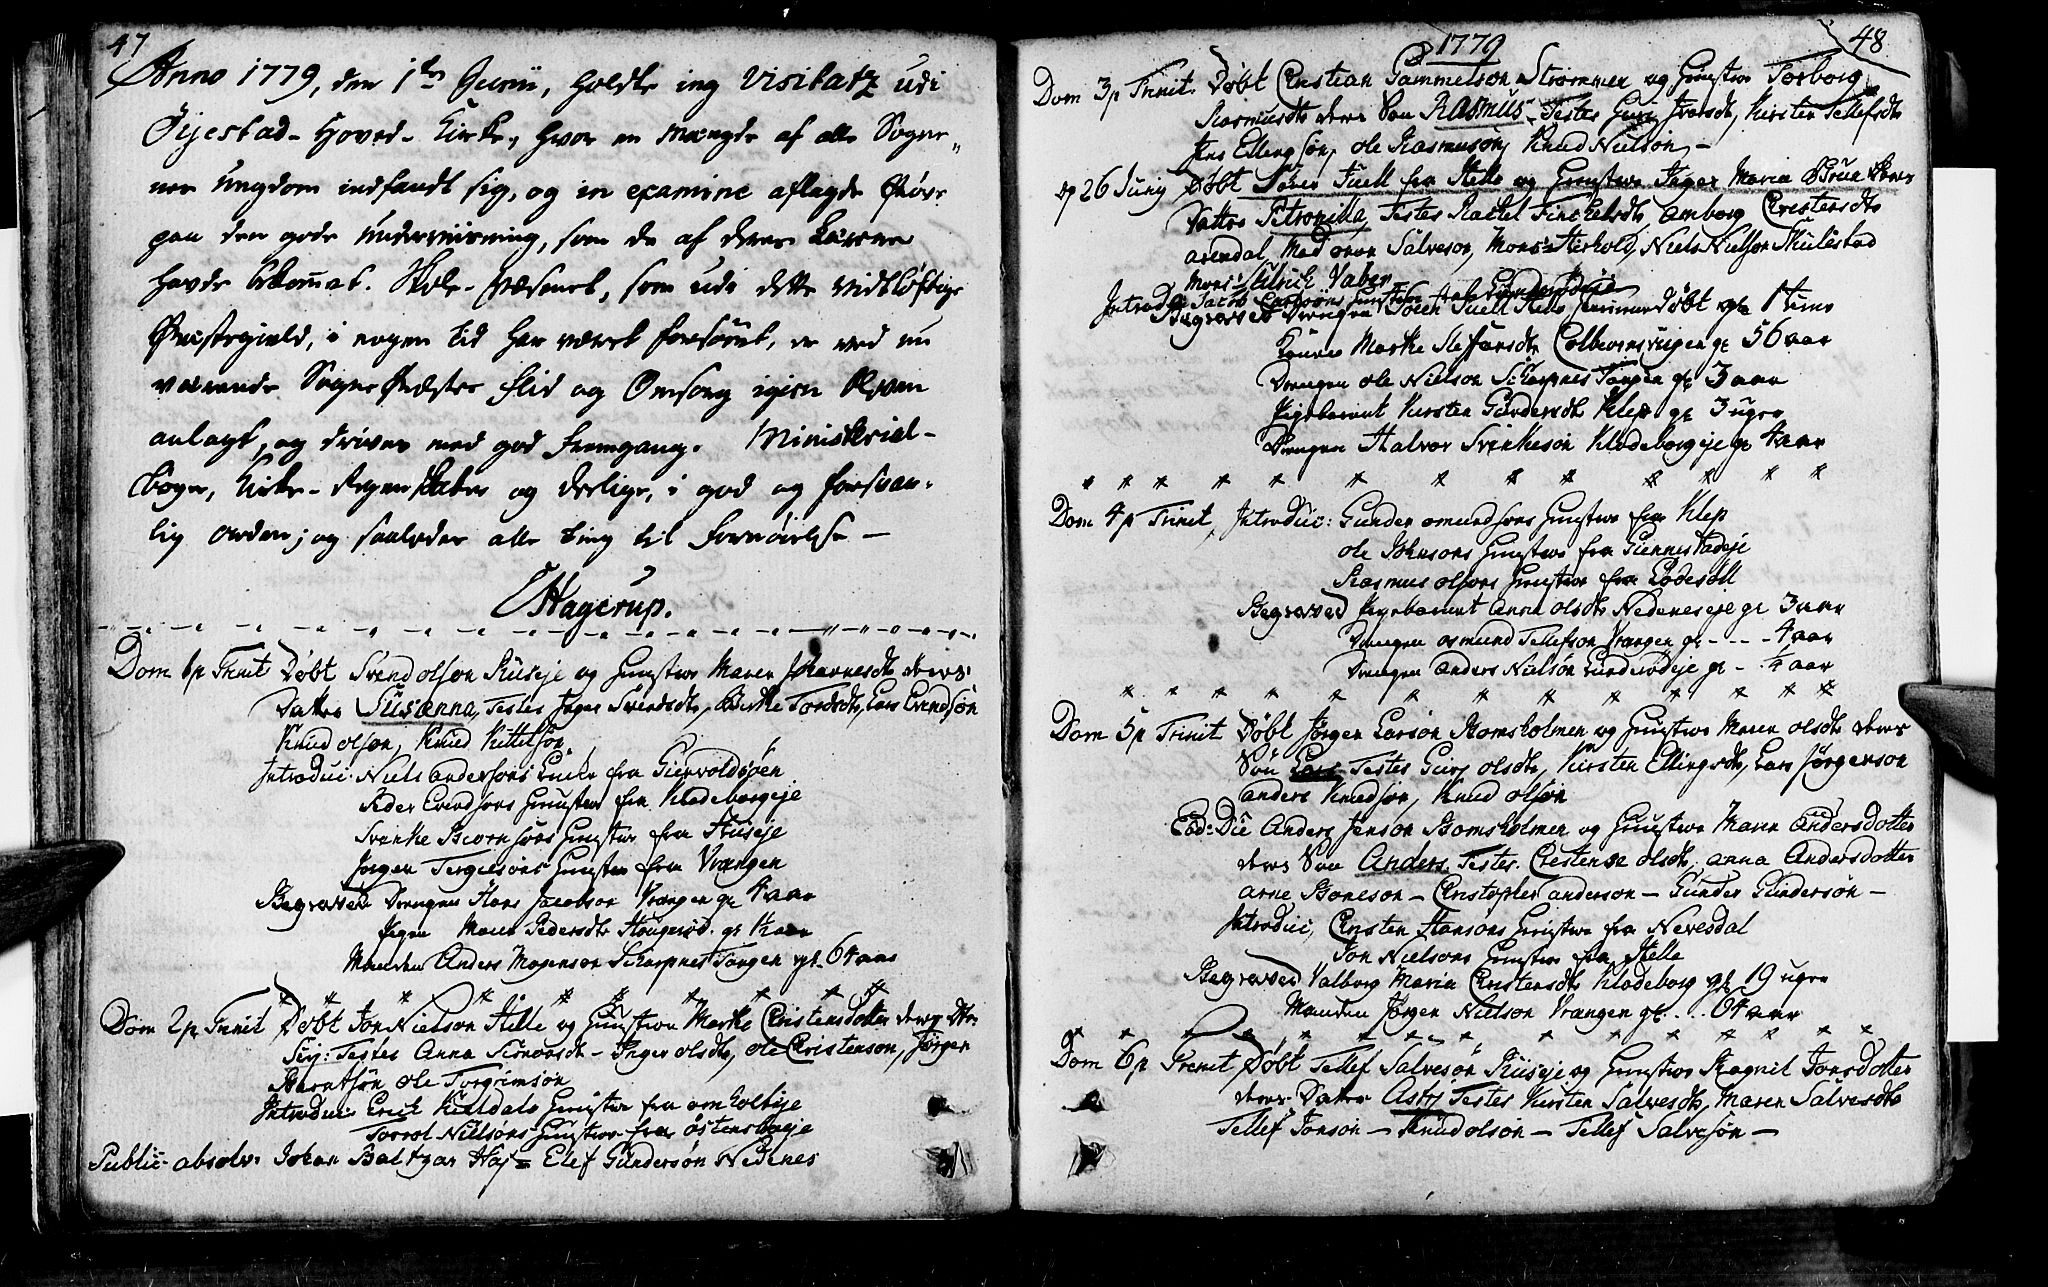 47
Anno 1779, den 1ten Junii, holdte jeg Visitatz udi
Øijestad-Hoved-Kirke, hvor en Mængde af alle Sogne-
nes Ungdom indfandt sig, og in examine aflagde Prøver
paa den gode Underviisning, som de af deres Lærere
havde bekommet. Skole-Væsenet, som udi dette vidtløftige
Præstegield, i nogen tid har været forsømt, er ved nu
værende Sogne Præstes flid og Omsorg igien
anlagt, og drives med god fremgang. Ministerial-
bøger, Kirke-Regenskaber og deslige, i god og forsvar-
lig orden; og saaledes alle ting til fornøielse —
Hagerup.
Dom 1 p Trinit Døbt Svend olsøn Ruseje og Hustroe Maren deres
Datter Susanna, Testes Inger Svendsdt, Tordsdt, Lars Evendsøn
Knud olsøn, Knud Kittelsøn
Introduc: Niels andersøns Qvinde fra Giervoldsøen
Peder Evendsøns Hustroe fra Klodeborgeje
Svenke Biørnsøns Hustroe fra Huseje
Jørgen Tergiesøns Hustroe fra Vrangen
Begravet Drengen Hans Jacobsøn Vrangen gl 4 aar
Pigen Maren Pedersdt Haugerød gl aar
Manden Anders Mogensøn Scharpnes Tangen gl. 64 aar
Dom 2 p Trinit Døbt Jon Nielson Helle og Hustroe Marthe Christensdotter deres Dtr:
Siri: Testes Anna - Inger olsdt, ole Christenson, Jørgen
Berntsøn ole Torgrimsøn
Introduc: Erich Kieldals Hustroe fra omholteje
Torvol Nielsøns Hustroe fra østensboeje
Public: absolv: Johan Baltzar Haj = Elef Gundersøn Nedenes
1779
48
Dom 3 p Trinit. Døbt Christian Gammelson Strømmen og Hustroe Torborg
Rasmusdt deres Søn Rasmus - Testes Guri Iversdt, Kirsten Tellefsdt
Jens Ellingsøn, ole Rasmusøn, Knud Nielsøn -
dp 26 Junij Døbt Søren Juell fra Helle og Hustroe Inger Maria Bruun deres
Datter Petronilla, Testes Rachel Finckelsdt, amborg Christensdt
arendal, Mad: Salveson, Mons: Herhold, Niels Nielson Mulestad
Mons: Ulrich Vaber
Introd: Jacob Carlsøns Hustroe fra Lunderødeje
Begravet Drengen Søren Juell Helle hiemmedøbt gl 1 time
Konen Marthe Steffansdt Colbiørnsvigen gl 56 aar
Drengen ole Nielson Scharpnes Tangen gl 3 aar
Pigebarnet Kirsten Gundersdt Klep gl 3 uger
Drengen Halvor Svenkesøn Klodeborgeje gl 4 aar
Dom 4 p Trinit, Introduc: Gunder omundsøns Hustroe fra Klep
ole Johnsons Hustroe fra Giennestadeje
Rasmus olsøns Hustroe fra Løddesøll
Begravet Pigebarnet Anne olsdt Nedeneseje gl 3 aar
Drengen osmund Tellefson Vrangen gl - - - 4 aar
Drengen anders Nielsøn Lunderødeje gl - ¼ aar
Dom 5 p Trinit Døbt Jørgen Larson Romsholmen og Hustroe Maren olsdt deres
Søn Lars Testes Gurj olsdt, Kirsten Ellingsdt, Lars Jørgenson
anders Knudson, Knud olson
Eod: Die Anders Jenson Romsholmen og Hustroe Maren Andersdotter
deres Søn Anders Testes. Christense olsdt, anna Andersdotter
arne Boneson - Christopher anderson - Gunder Gunderson -
Introduc, Christen Hansons Hustroe fra Nevesdal
Jon Nielsons Hustroe fra Helle
Begravet Valborg Maria Christensdt Klodeborg gl 19 uger
Manden Jørgen Nielson Vrangen gl ... 64 aar
Dom 6 p Trinit, Døbt Tellef Salvesøn Ruseje og Hustroe Ragnil Jonsdotter
deres Datter Astj Testes Kirsten Salvesdt, Maren Salvesdt
Tellef Jonson - Knud olson - Tellef Salvesøn -